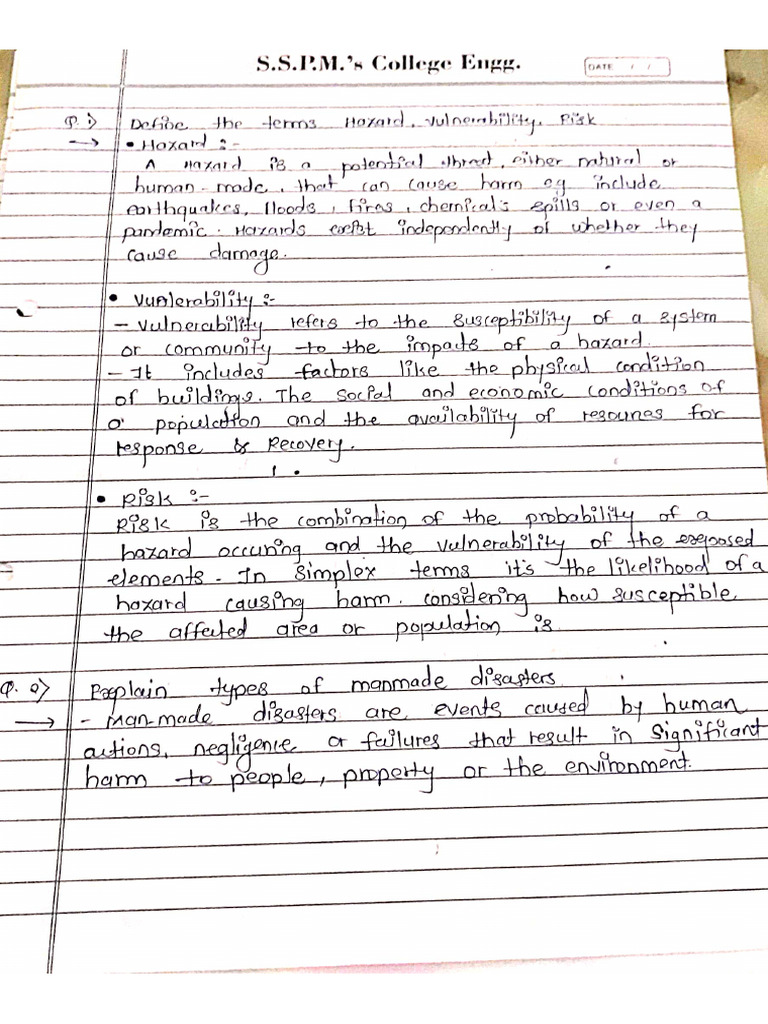 S.S.P.M.'s College Engg.
DATE / /
Q. 1) Define the terms Hazard, Vulnerability, Risk
→ • Hazard :-
A Hazard is a potential threat, either natural or
human-made, that can cause harm eg include
earthquakes, floods, fires, chemical's spills or even a
pandemic. Hazards exist independently of whether they
cause damage.
• Vunlerability :-
- Vulnerability refers to the susceptibility of a system
or community to the impacts of a hazard.
- It includes factors like the physical condition
of buildings. The social and economic conditions of
a population and the availability of resources for
response & Recovery.
• Risk :-
Risk is the combination of the probability of a
hazard occuring and the vulnerability of the exposed
elements. In simplex terms it's the likelihood of a
hazard causing harm. considering how susceptible
the affected area or population is
Q. 2) Explain types of manmade disasters
→ - Man-made disasters are events caused by human
actions, negligence or failures that result in significant
harm to people, property or the environment.